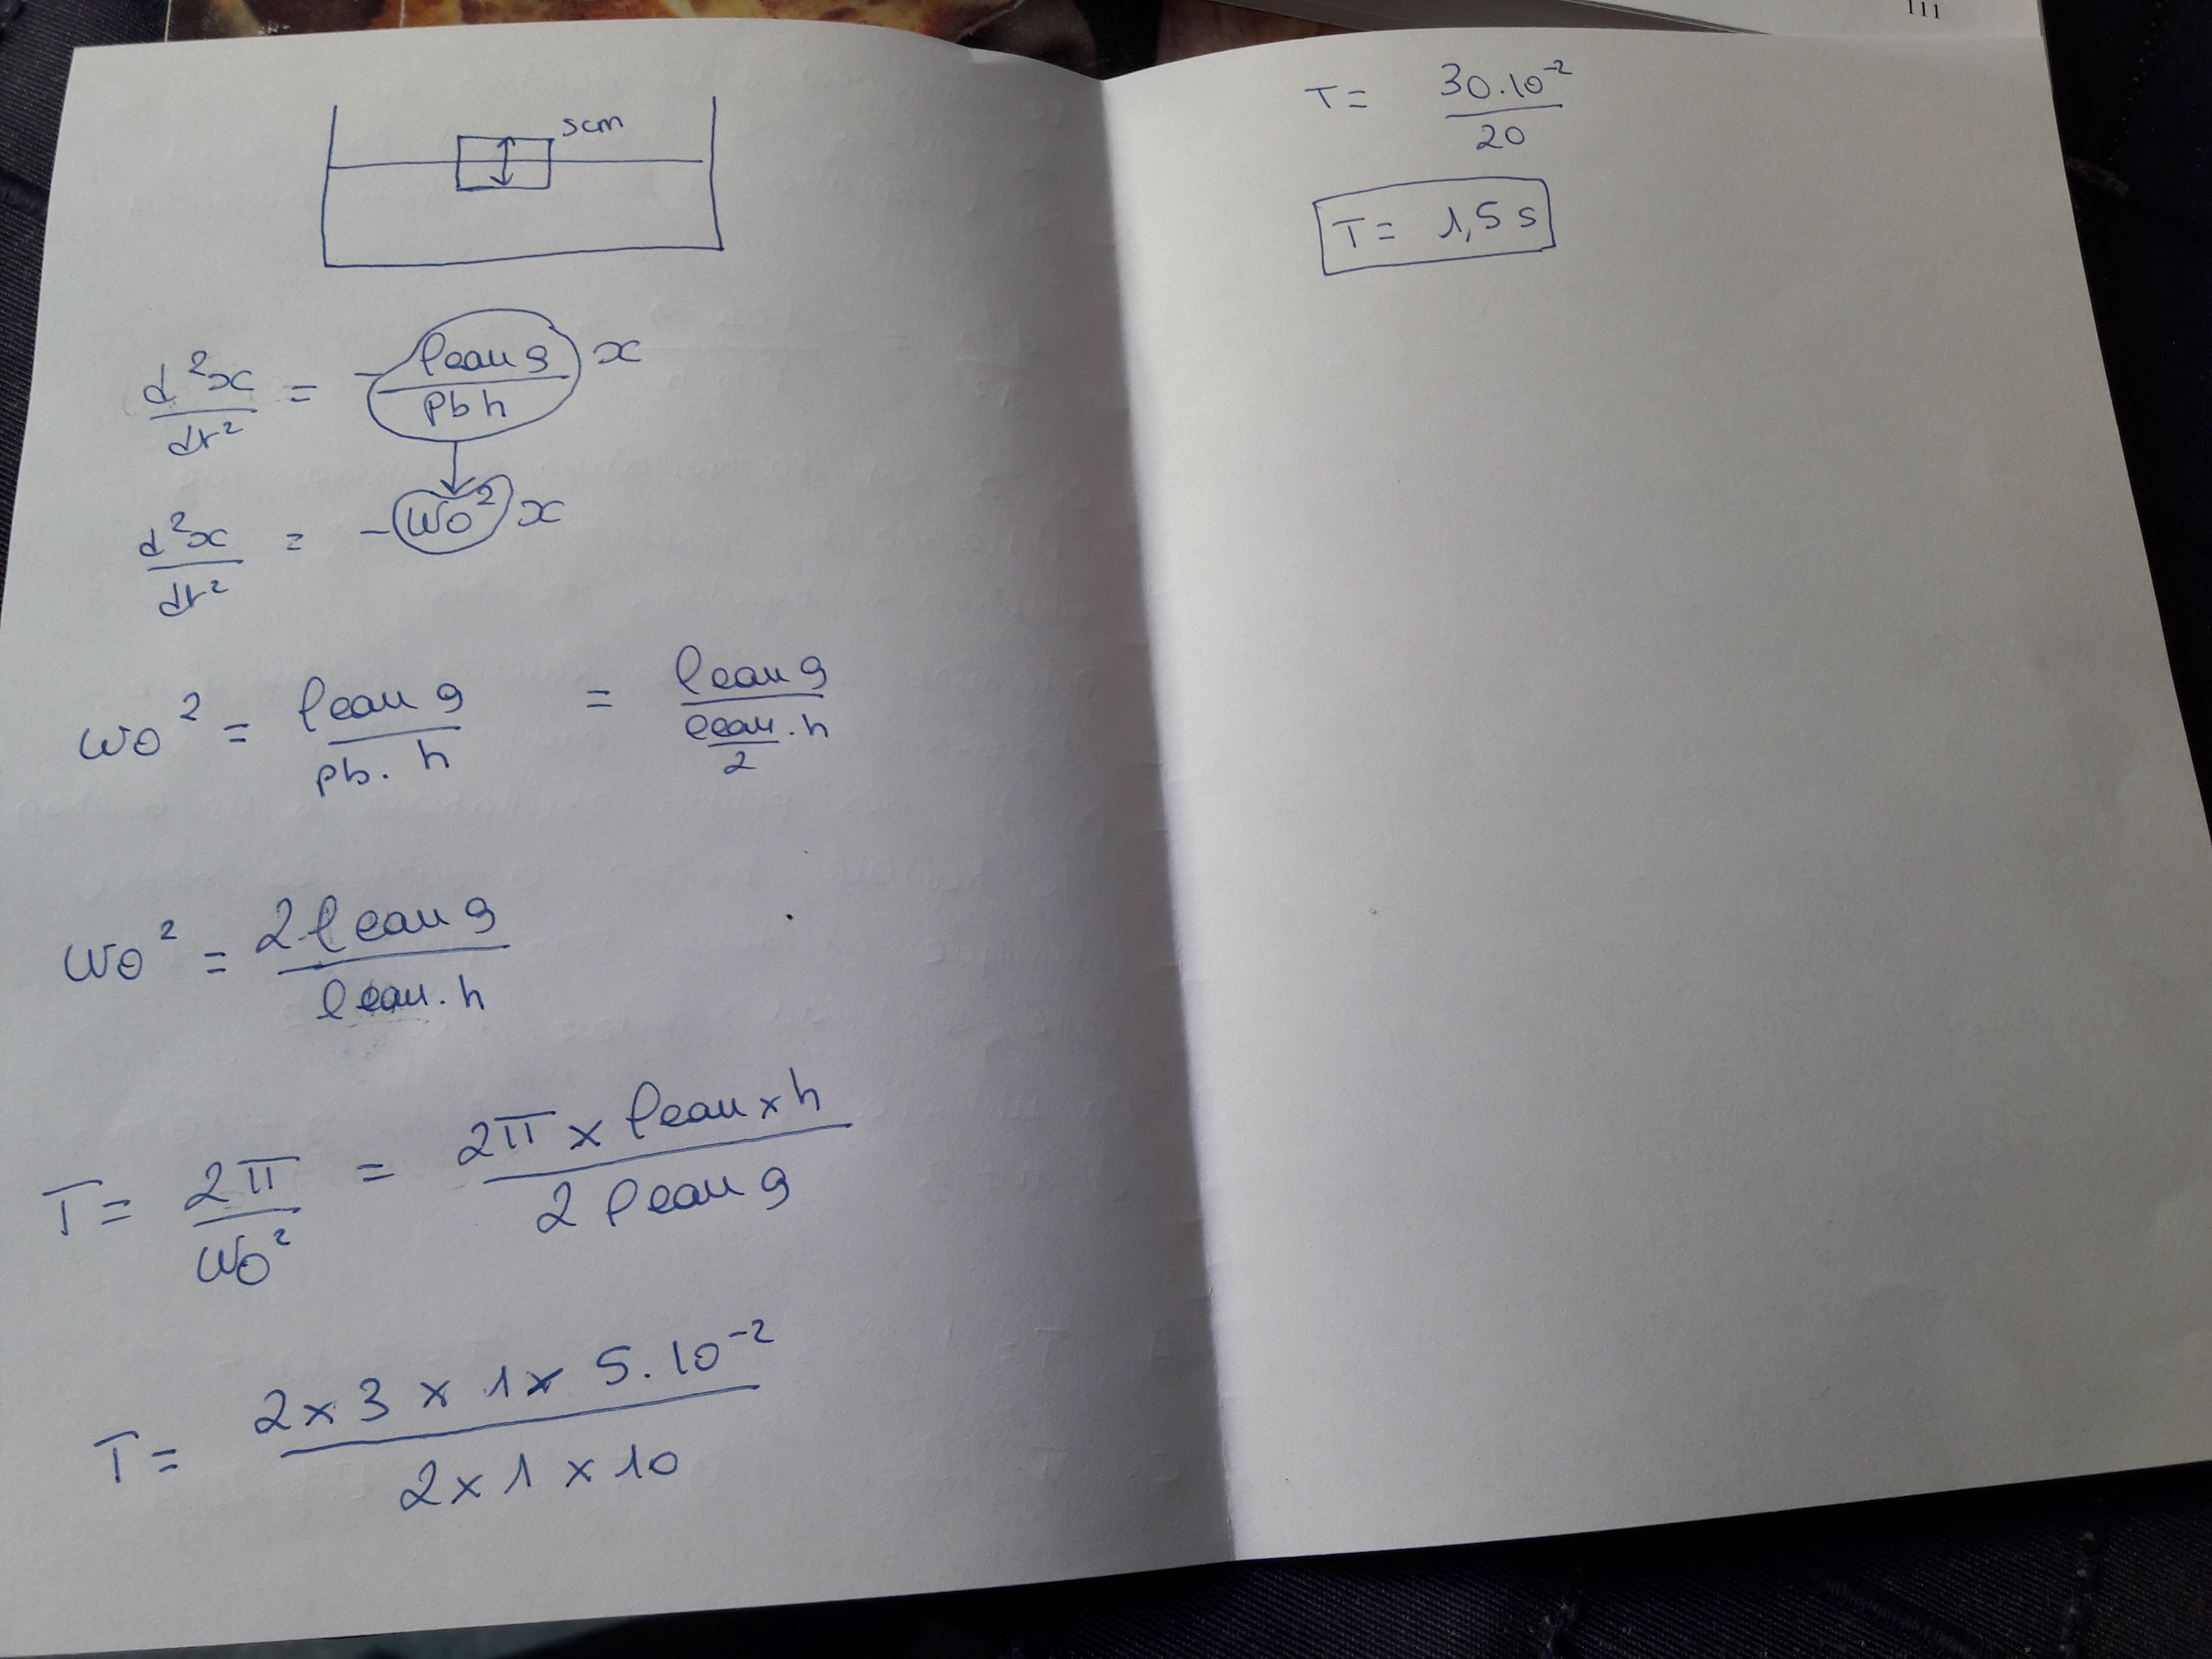 5cm
d²x/dt² = - ρeau g / ρb h x
d²x/dt² = - ω0² x
ω0² = ρeau g / ρb . h = ρeau g / (ρeau/2 . h)
ω0² = 2 ρeau g / ρeau . h
T = 2π / ω0² = 2π × ρeau × h / 2 ρeau g
T = 2 × 3 × 1 × 5.10⁻² / 2 × 1 × 10
111
T = 30.10⁻² / 20
T = 1,5 s